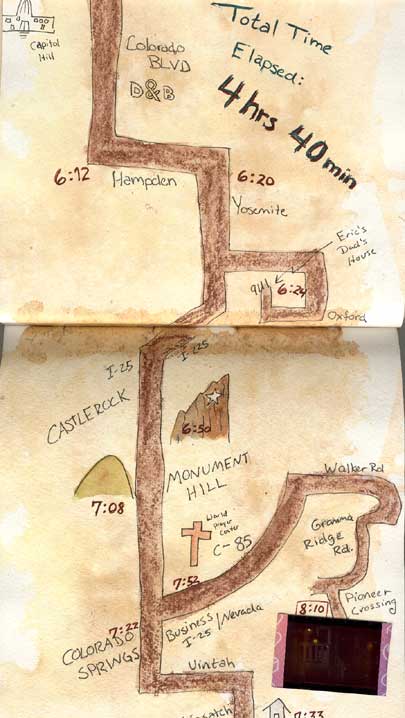 Capitol
Hill
Colorado
BLVD
D&B
Total Time
Elapsed:
4 hrs 40 min
6:12
Hampden
6:20
Yosemite
Eric's
Dad's
House
6:24
Oxford
I-25
I-225
CASTLEROCK
6:50
MONUMENT
HILL
7:08
World
Prayer
Center
C-85
7:52
Walker Rd
Gramma
Ridge
Rd.
Pioneer
Crossing
8:10
7:22
COLORADO
SPRINGS
Business
I-25
/Nevada
Uintah
7:33